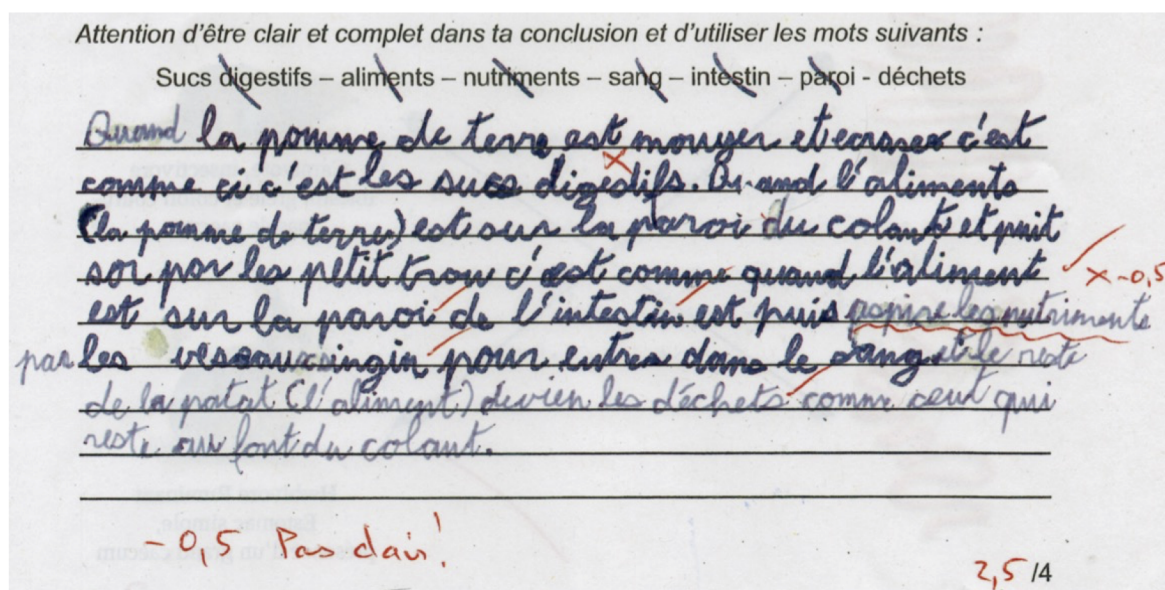 Attention d'être clair et complet dans ta conclusion et d'utiliser les mots suivants :
Sucs digestifs – aliments – nutriments – sang – intestin – paroi - déchets
Quand la pomme de terre est mouyer et ecraser c'est
comme ci c'est les sucs digestifs. Quand l'aliments
(la pomme de terre) est sur la paroi du colant et puit
sor par les petit trou c'est comme quand l'aliment
x -0,5
est sur la paroi de l'intestin est puis aspire les nutriments
par les veseaux singin pour entrer dans le sang et le reste
de la patat (l'aliment) devien les déchets comme seut qui
reste au font du colant.
-0,5 Pas clair!
2,5 /4